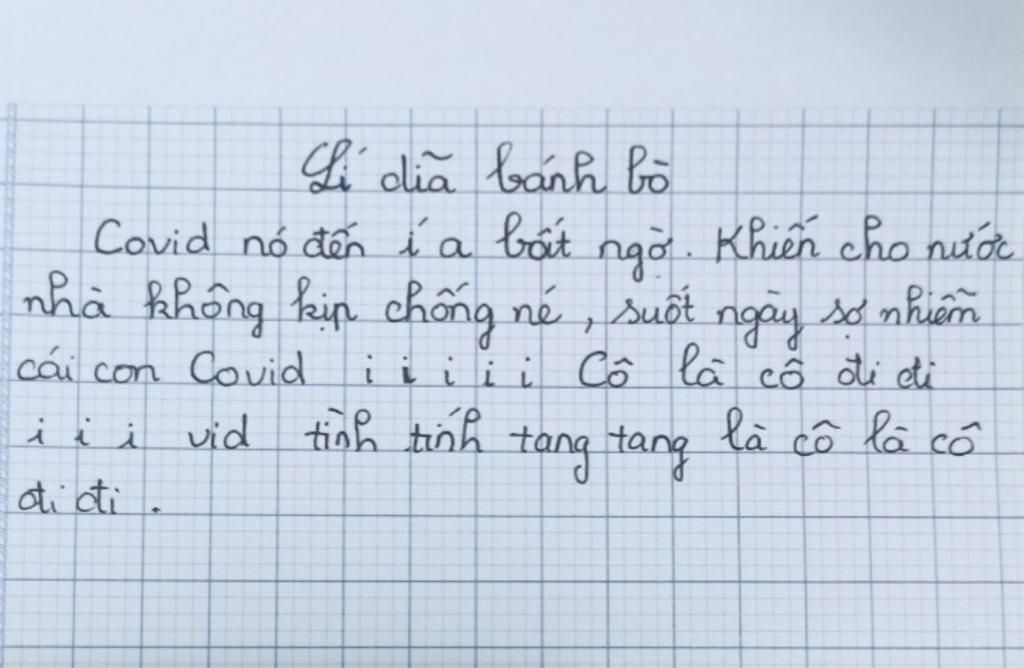 Lí dĩa bánh bò
Covid nó đến í a bất ngờ. Khiến cho nước
nhà không kịp chống né, suốt ngày sợ nhiễm
cái con Covid i i i i i Cô là cô đi đi
i i i vid tình tính tang tang là cô là cô
đi đi.